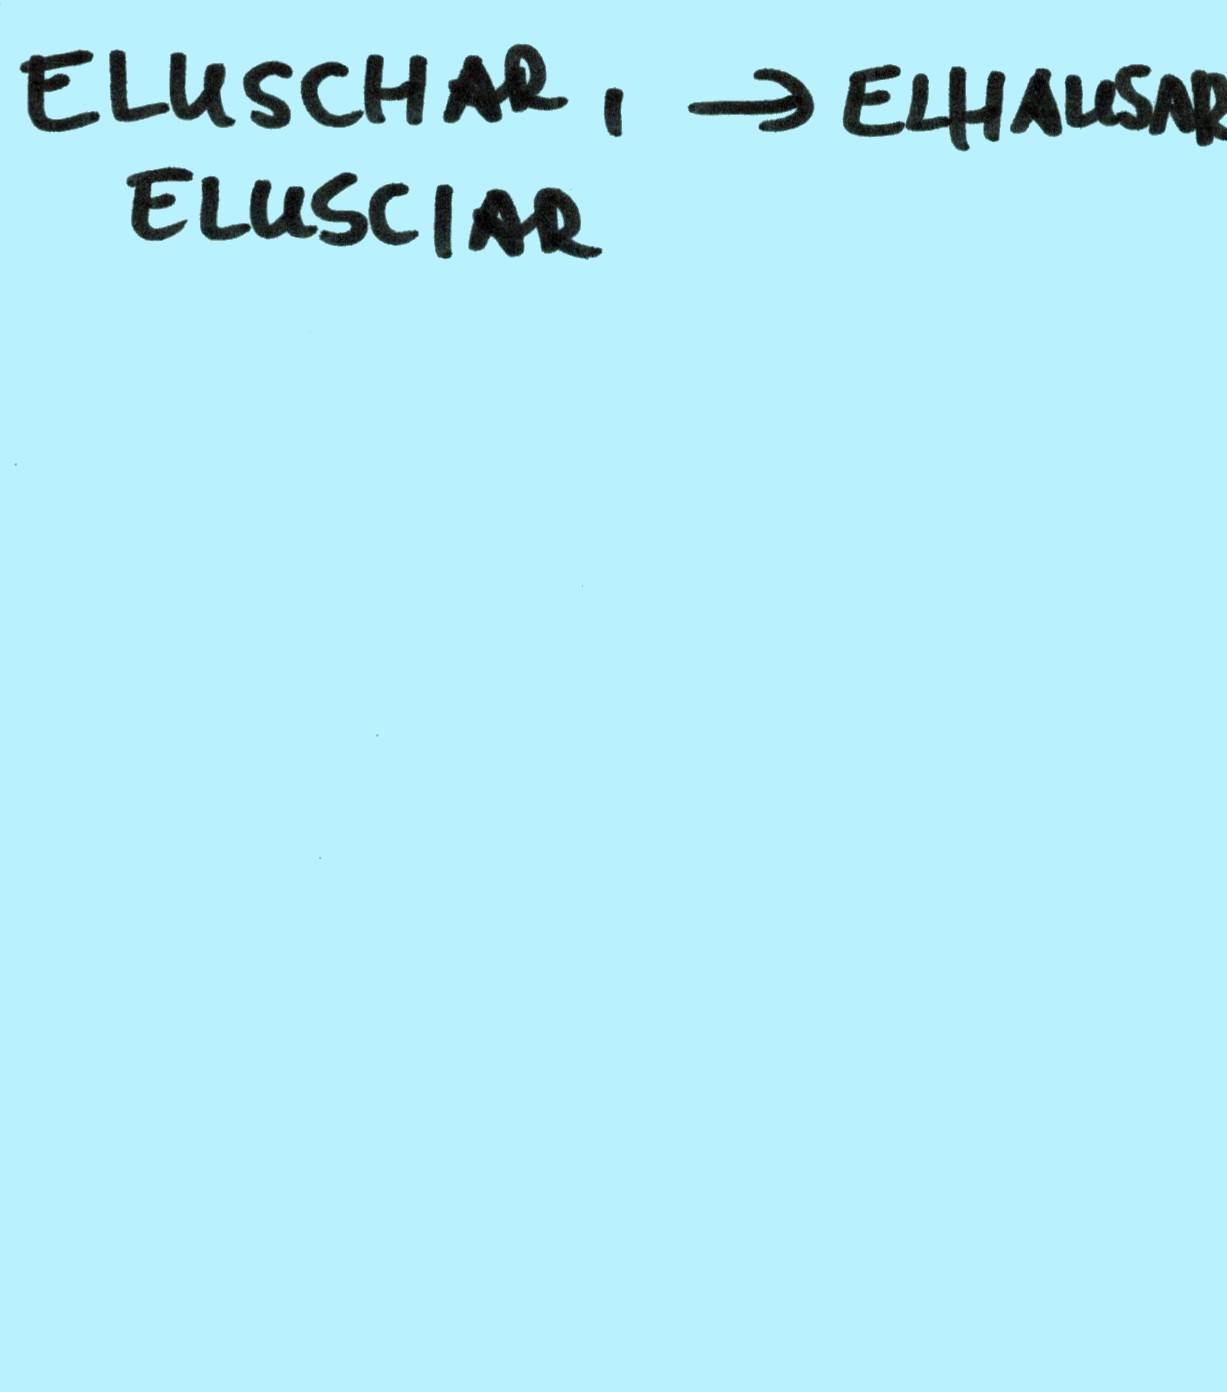 ELUSCHAR, → ELHAUSAR
ELUSCIAR